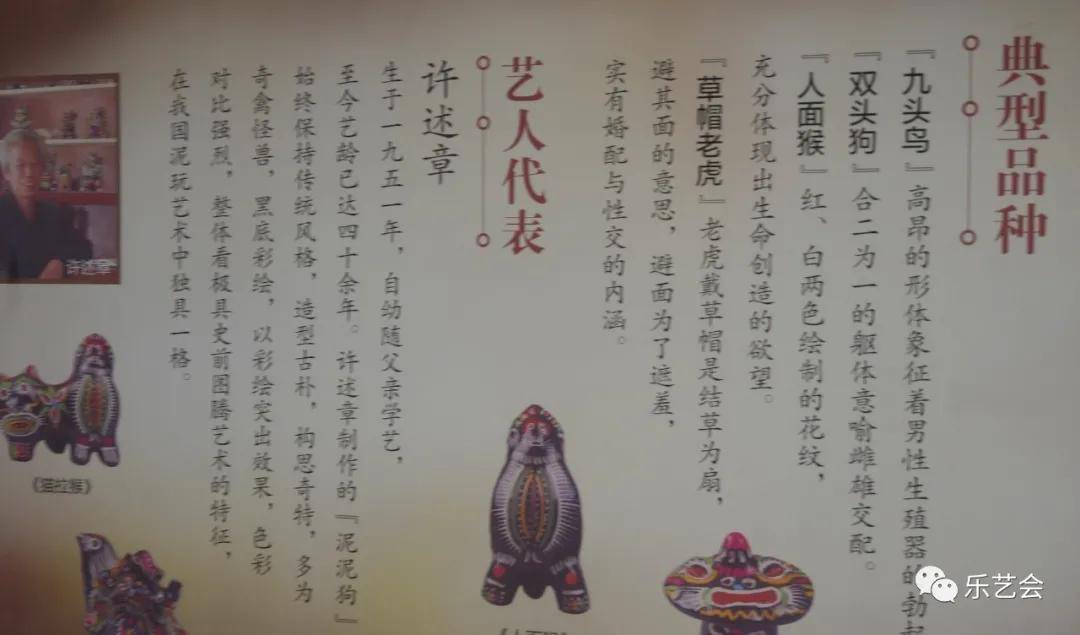 典型品种
『九头鸟』高昂的形体象征着男性生殖器的勃起
『双头狗』合二为一的躯体意喻雌雄交配。
『人面猴』红、白两色绘制的花纹，
充分体现出生命创造的欲望。
『草帽老虎』老虎戴草帽是结草为扇，
避其面的意思，避面为了遮羞，
实有婚配与性交的内涵。
艺人代表
许述章
生于一九五一年，自幼随父亲学艺，
至今艺龄已达四十余年。许述章制作的『泥泥狗』
始终保持传统风格，造型古朴，构思奇特，多为
奇禽怪兽，黑底彩绘，以彩绘突出效果，色彩
对比强烈，整体看极具史前图腾艺术的特征，
在我国泥玩艺术中独具一格。
许述章
《猫拉猴》
乐艺会